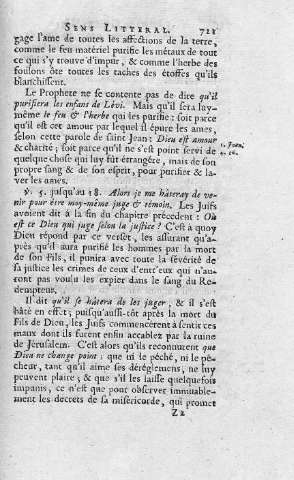 SENS LITTERAL. 721
gage l'ame de toutes les affections de la terre,
comme le feu matériel purifie les métaux de tout
ce qui s'y trouve d'impur, & comme l'herbe des
foulons ôte toutes les taches des étoffes qu'ils
blanchissent.
Le Prophete ne se contente pas de dire qu'il
purifiera les enfans de Lévi. Mais qu'il sera luy-
même le feu & l'herbe qui les purifie: soit parce
qu'il est cet amour par lequel il épure les ames,
selon cette parole de saint Jean: Dieu est amour
& charité; soit parce qu'il ne s'est point servi de
quelque chose qui luy fût étrangére, mais de son
propre sang & de son esprit, pour purifier & la-
ver les ames.
1. Joan.
4. 16.
℣. 5. jusqu'au 18. Alors je me hâteray de ve-
nir pour être moy-même juge & témoin. Les Juifs
avoient dit à la fin du chapitre précedent: Où
est ce Dieu qui juge selon la justice? C'est à quoy
Dieu répond par ce verset, les assurant qu'a-
près qu'il aura purifié les hommes par la mort
de son Fils, il punira avec toute la sévérité de
sa justice les crimes de ceux d'entr'eux qui n'au-
ront pas voulu les expier dans le sang du Re-
dempteur.
Il dit qu'il se hâtera de les juger, & il s'est
hâté en effet; puisqu'aussi-tôt après la mort du
Fils de Dieu, les Juifs commencérent à sentir ces
maux dont ils furent enfin accablez par la ruine
de Jérusalem. C'est alors qu'ils reconnurent que
Dieu ne change point: que ni le péché, ni le pé-
cheur, tant qu'il aime ses déréglemens, ne luy
peuvent plaire; & que s'il les laisse quelquefois
impunis, ce n'est que pour observer immuable-
ment les décrets de sa miséricorde, qui promet
Zz